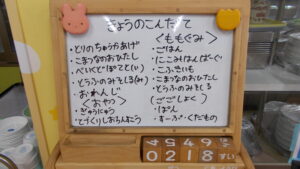 きょうのこんだて
・とりのちゅうかあげ
・こまつなのおひたし
・べいくどぽてと(い)
・とうふのみそしる(い)
・おれんじ
<おやつ>
・ぎゅうにゅう
・てづくりしおらんまうこう
<ももぐみ>
・ごはん
・にこみはんばーぐ
・こふきいも
・こまつなのおひたし
・とうふのみそしる
(ごごしょく)
・ぱん
・すーぷ・くだもの
4 5 4 9
0 2 1 8 すい